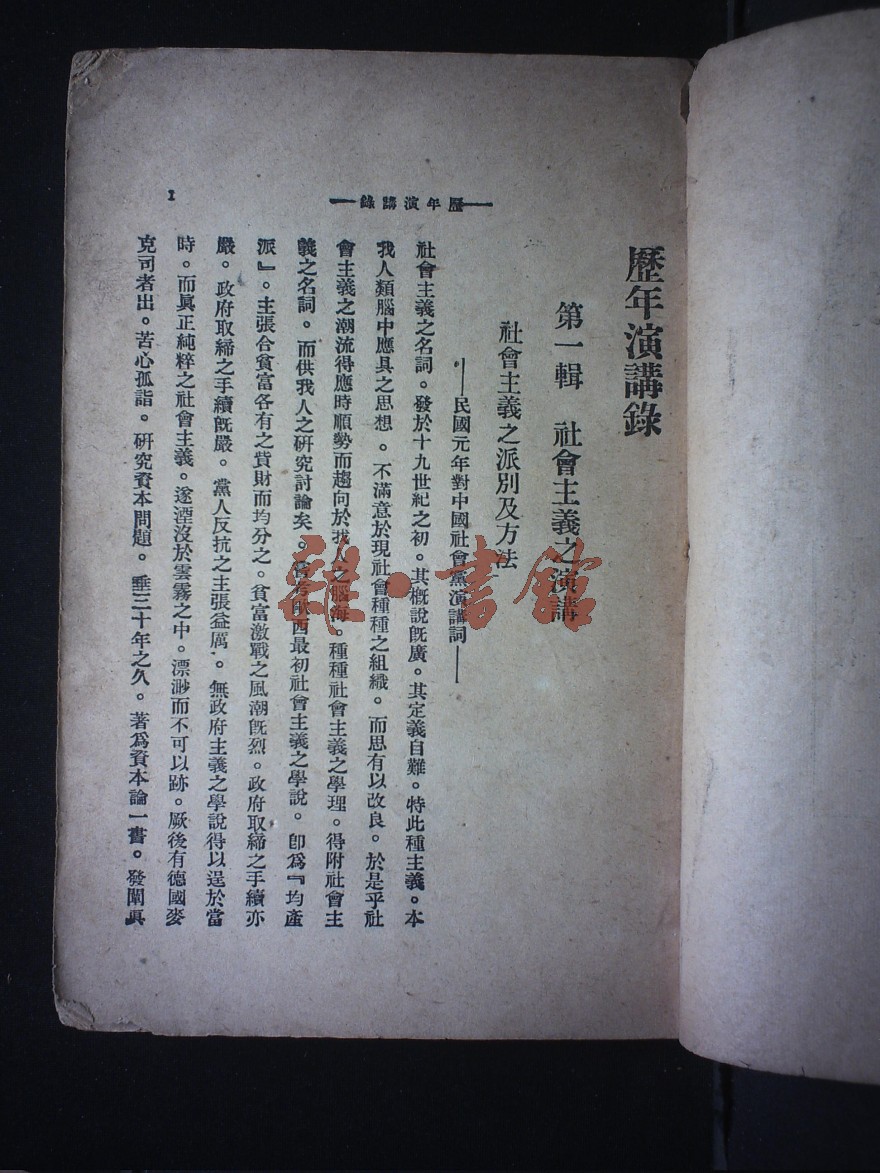 歷年演講錄
第一輯　社會主義之演講
社會主義之派別及方法
——民國元年對中國社會黨演講詞——
社會主義之名詞。發於十九世紀之初。其概說旣廣。其定義自難。特此種主義。本
我人類腦中應具之思想。不滿意於現社會種種之組織。而思有以改良。於是乎社
會主義之潮流得應時順勢而趨向於我人之腦海。種種社會主義之學理。得附社會主
義之名詞。而供我人之硏究討論矣。嘗考歐西最初社會主義之學說。卽爲『均產
派』。主張合貧富各有之貲財而均分之。貧富激戰之風潮旣烈。政府取締之手續亦
嚴。政府取締之手續旣嚴。黨人反抗之主張益厲。無政府主義之學說得以逞於當
時。而眞正純粹之社會主義。遂湮沒於雲霧之中。漂渺而不可以跡。厥後有德國麥
克司者出。苦心孤詣。硏究資本問題。垂三十年之久。著爲資本論一書。發闡眞
——歷年演講錄——
1
雜·書館